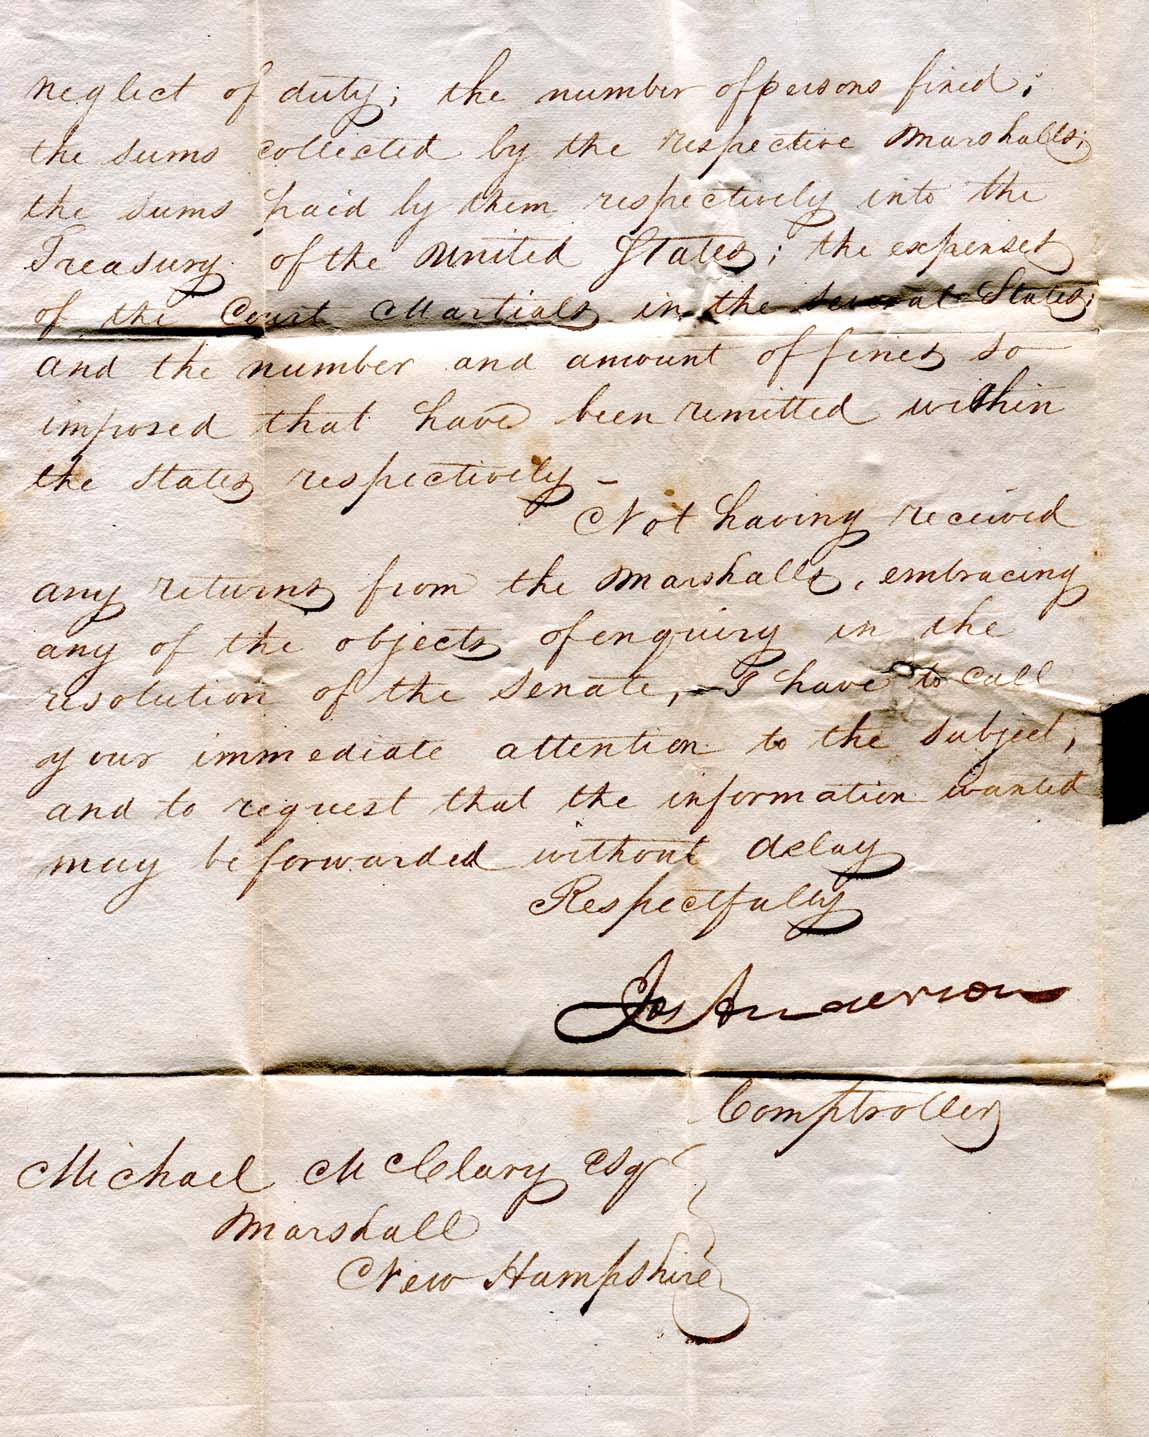 neglect of duty; the number of persons fined;
the sums collected by the respective Marshalls;
the sums paid by them respectively into the
Treasury of the United States; the expenses
of the Court Martials in the several States;
and the number and amount of fines so
imposed that have been remitted within
the States respectively –
Not having received
any returns from the Marshalls, embracing
any of the objects of enquiry in the
resolution of the Senate, – I have to call
your immediate attention to the subject,
and to request that the information wanted
may be forwarded without delay
Respectfully
Jos Anderson
Comptroller
Michael McClary Esqr
Marshall
New Hampshire